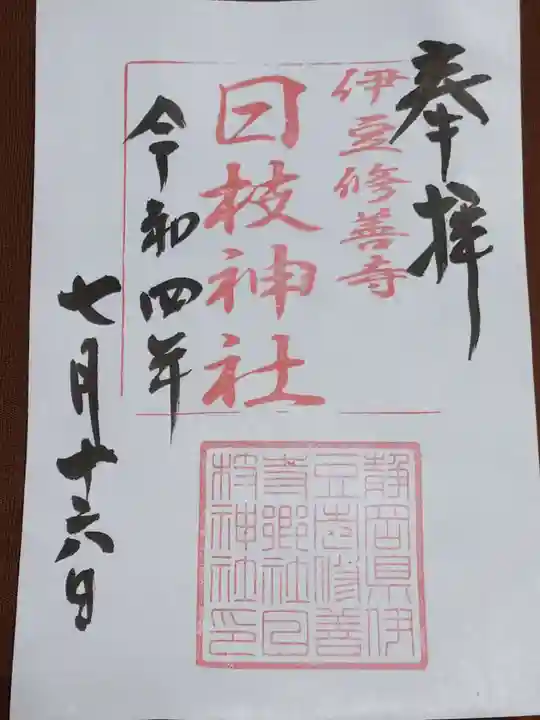 奉拝
伊豆修善寺
日枝神社
令和四年
七月十六日
静岡県伊
豆市修善
寺郷社日
枝神社印